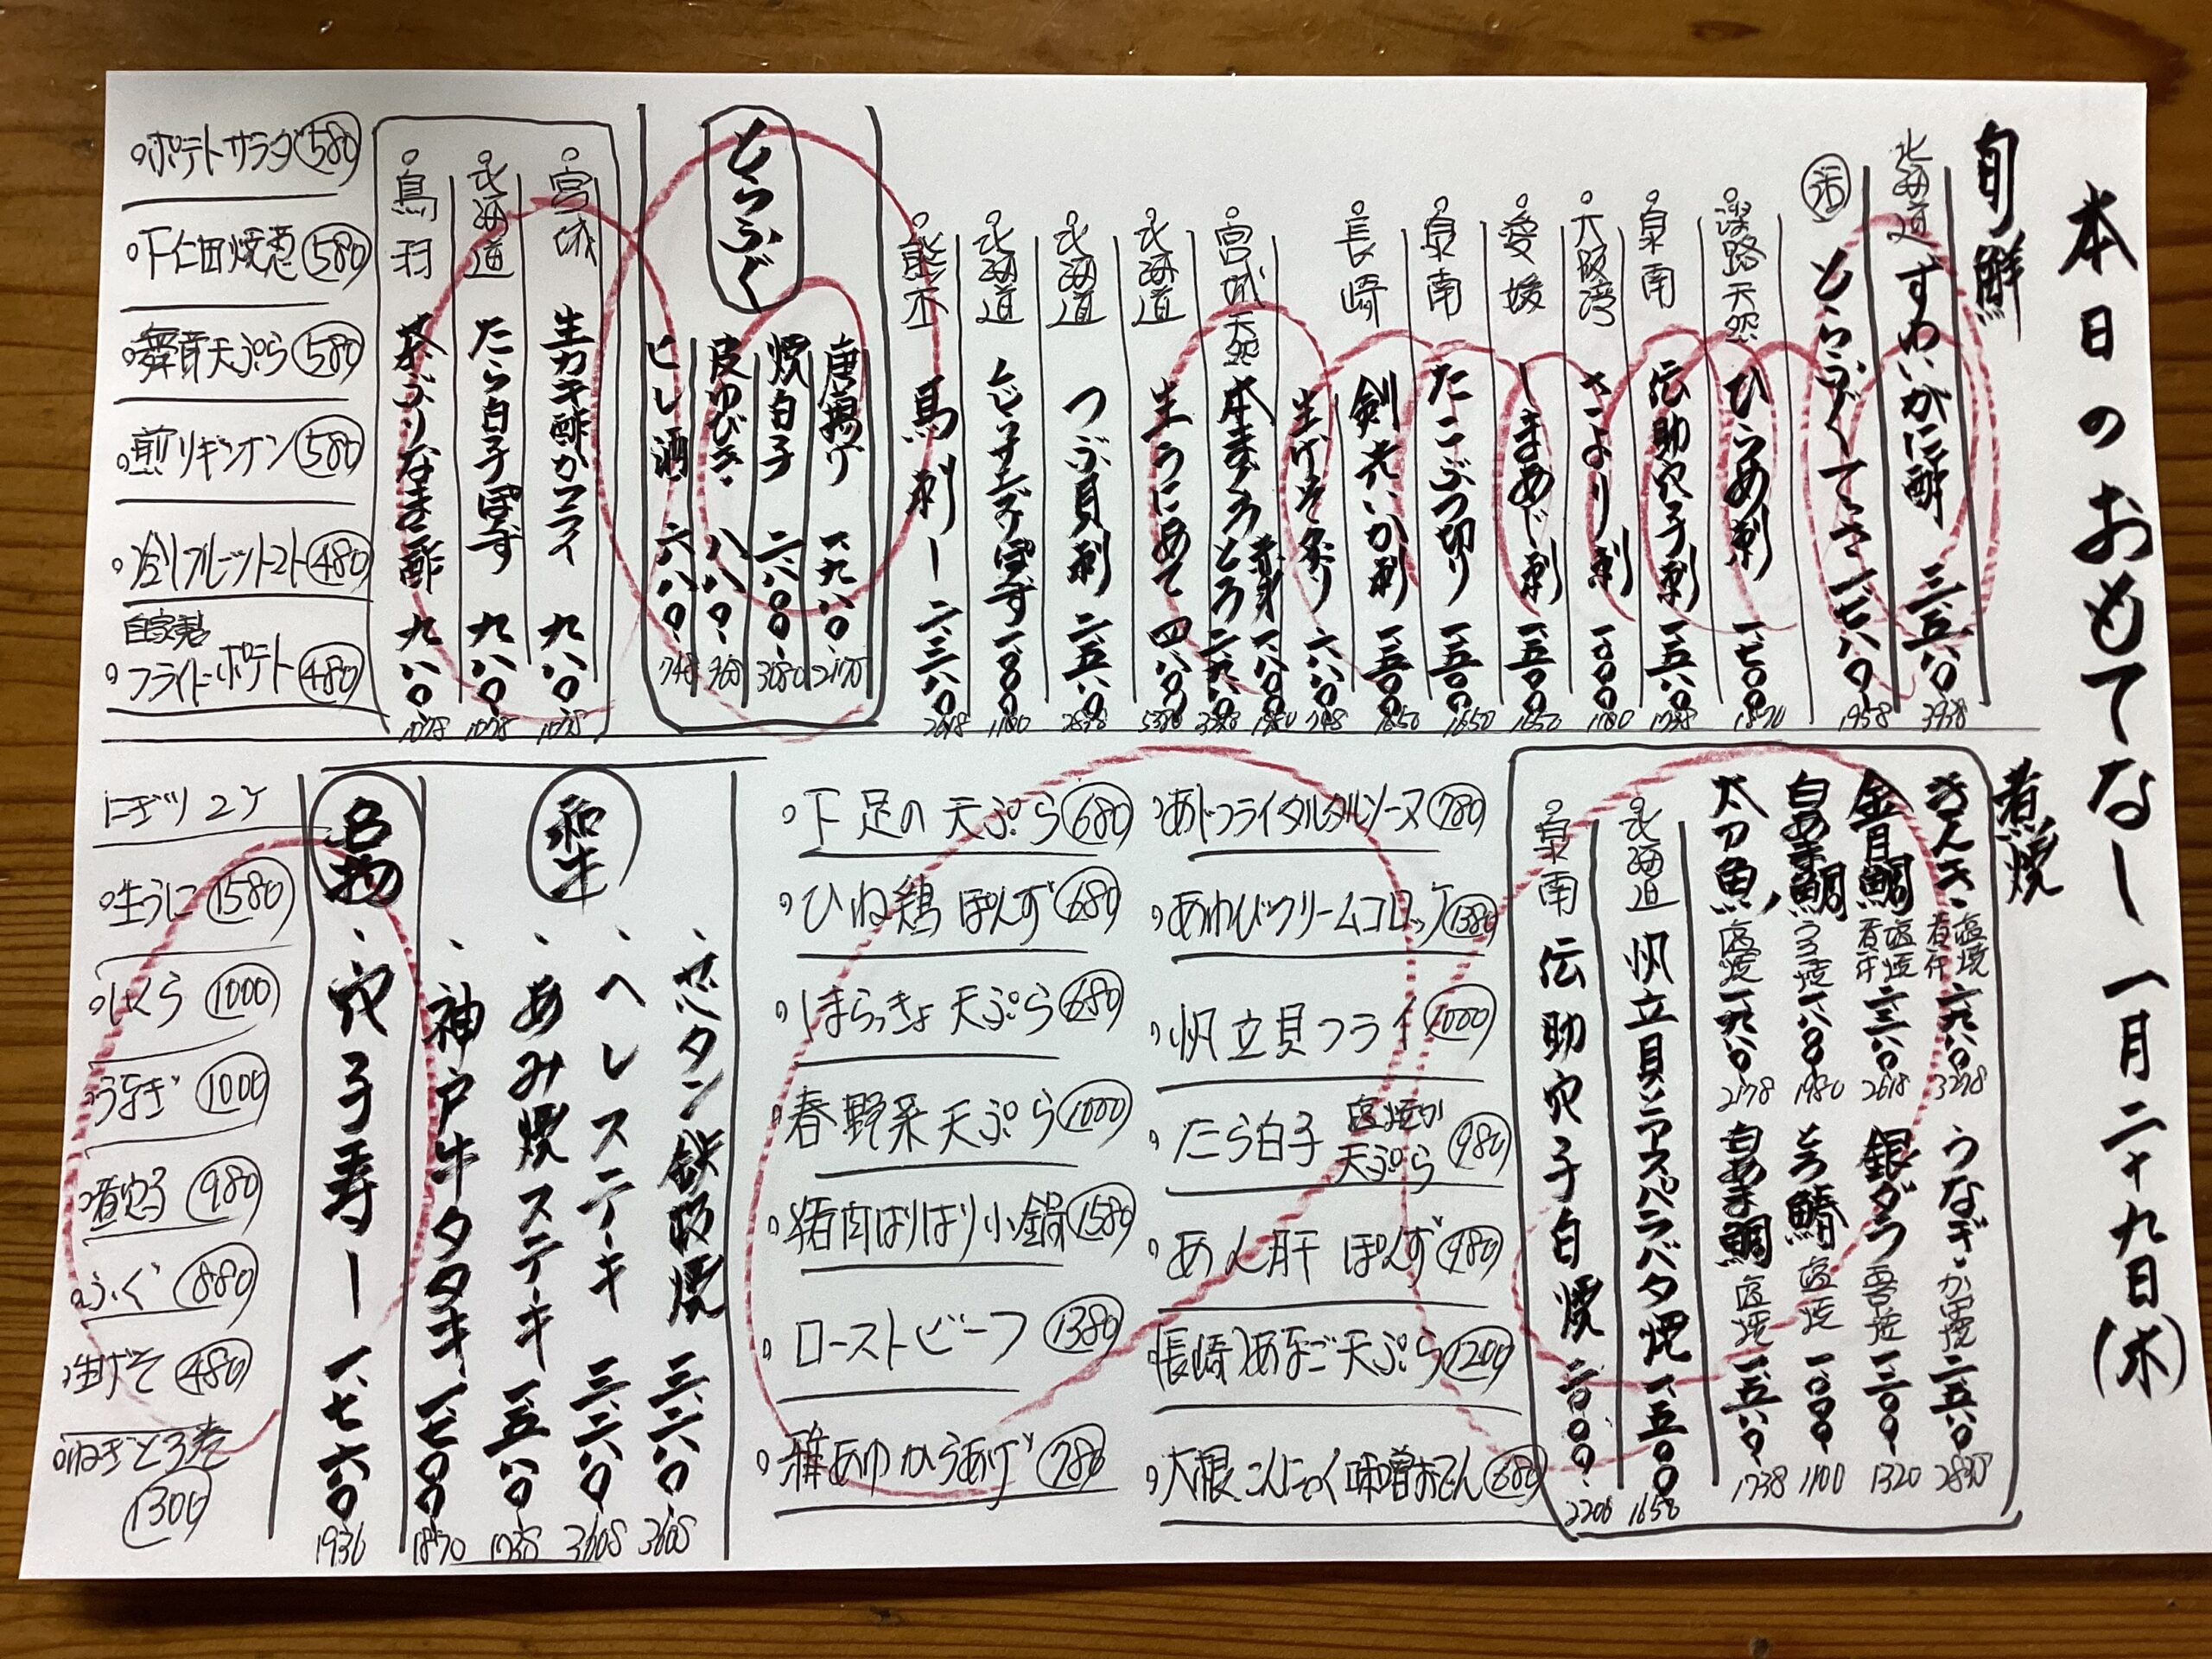 本日のおもてなし 一月二十九日(水)
旬鮮
北海道 すわいがに酢 三、五八〇 3938
活 とらふぐてっさ 一、七八〇 1958
淡路天然 ひらめ刺 一、七〇〇 1870
泉南 伝助穴子刺 一、五八〇 1738
大阪湾 さより刺 一、〇〇〇 1100
愛媛 しまあじ刺 一、五〇〇 1650
泉南 たこぶつ切り 一、五〇〇 1650
長崎 剣先いか刺 一、五〇〇 1650
生げそ炙り 六八〇 748
宮城 天然 本まぐろ 赤身 一、八〇〇 1980
とろ 二、九八〇 3278
北海道 生うにあて 四、八〇〇 5280
北海道 つぶ貝刺 二、五八〇 2838
北海道 一、〇〇〇 1100
熊本 馬刺し 二、三八〇 2618
とらふぐ
唐揚げ 一、九八〇 2178
焼白子 二、八〇〇 3080
皮ゆびき 八八〇 968
ヒレ酒 六八〇 748
宮城 生カキ酢かフライ 九八〇 1078
北海道 たら白子ぽん酢 九八〇 1078
鳥羽 茶ぶりなまこ酢 九八〇 1078
ポテトサラダ 580
下仁田焼葱 580
舞茸天ぷら 580
煎りギンナン 580
冷しフルーツトマト 480
自家製 フライドポテト 480
煮焼
きんき 塩焼 煮付 二、九八〇 3278
金目鯛 塩焼 煮付 二、三八〇 2618
白あま鯛 うろこ焼 一、八〇〇 1980
太刀魚 塩焼 一、九八〇 2178
うなぎ かば焼 二、五八〇 2838
銀ダラ 西京焼 一、二〇〇 1320
とろ鯖 塩焼 一、〇〇〇 1100
白あま鯛 塩焼 一、五八〇 1738
北海道 帆立貝とアスパラバタ焼 一、五〇〇 1650
泉南 伝助穴子白焼 二、〇〇〇 2200
あじフライタルタルソース 780
あわびクリームコロッケ 1380
帆立貝フライ 1000
たら白子 塩焼か 天ぷら 980
あん肝ぽんず 980
長崎 あなご天ぷら 1200
大根こんにゃく味噌おでん 680
下足の天ぷら 680
ひね鶏ぽんず 680
しまらっきょ天ぷら 680
春野菜天ぷら 1000
猪肉はりはり小鍋 1580
ローストビーフ 1380
稚あゆからあげ 780
和牛
ゼイタン鉄板焼 三、二八〇 3608
ヘレステーキ 三、二八〇 3608
あみ焼ステーキ 一、五八〇 1738
神戸牛タタキ 一、七〇〇 1870
名物
穴子寿し 一、七六〇 1936
にぎり2ケ
生うに 1580
いくら 1000
うなぎ 1000
煮穴子 980
ふぐ 880
生げそ 480
ねぎとろ巻 1300